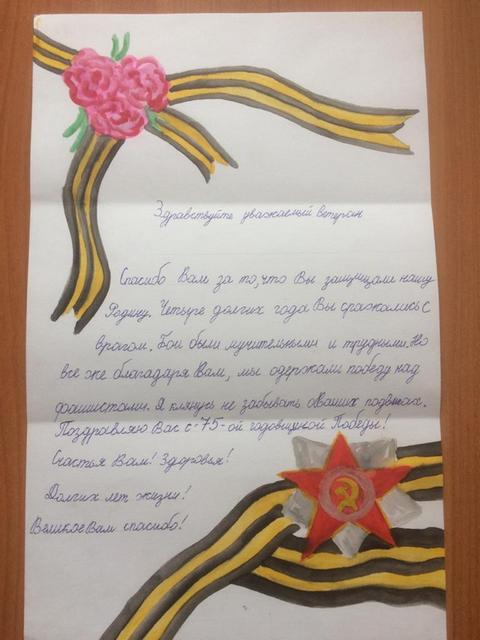 Здравствуйте уважаемый ветеран
Спасибо Вам за то, что Вы защищали нашу
Родину. Четыре долгих года Вы сражались с
врагом. Бои были мучительными и трудными. Но
все же благодаря Вам, мы одержали победу над
фашистами. Я клянусь не забывать о Ваших подвигах.
Поздравляю Вас с -75-ой годовщиной Победы!
Счастья Вам! Здоровья!
Долгих лет жизни!
Великое Вам спасибо!